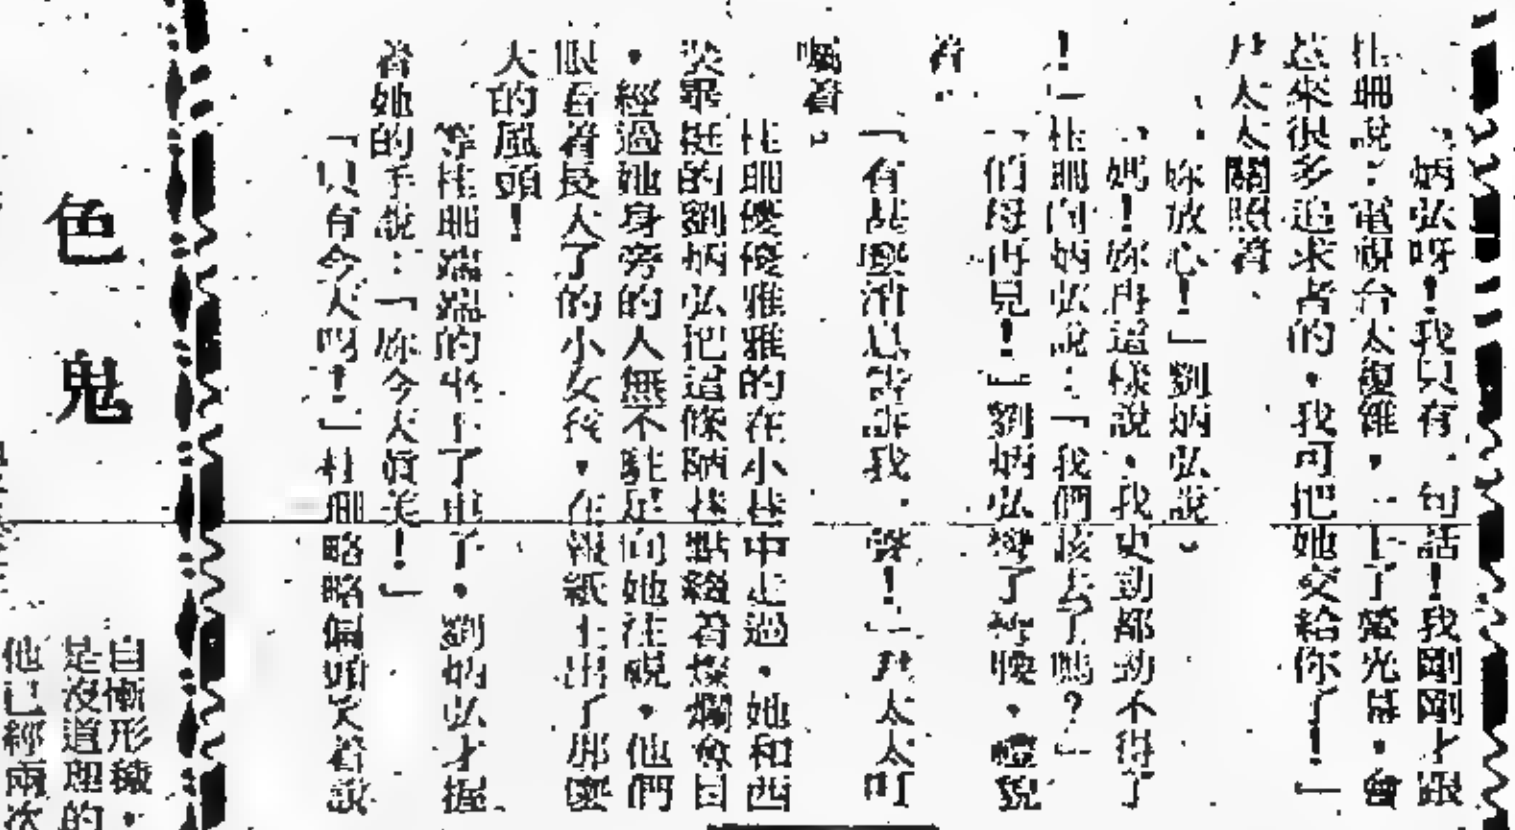 「炳弘呀！我只有一句話！我剛剛才跟
桂珊說：電視台太複雜，一上了螢光幕，會
惹來很多追求者的，我可把她交給你了！」
太太關照着
「妳放心！」劉炳弘說。
「媽！妳再這樣說，我更動都動不得了
！」桂珊向炳弘說：「我們該去了嗎？」
「伯母再見！」劉炳弘彎了彎腰，禮貌
着。
「有甚麼消息告訴我一聲！」太太叮
囑着。
桂珊優優雅雅的在小巷中走過，她和西
裝畢挺的劉炳弘把這條陋巷點綴着燦爛奪目
，經過她身旁的人無不駐足向她注視，他們
眼看着長大了的小女孩，在報紙上出了那麼
大的風頭！
等桂珊端端的坐上了車子，劉炳弘才握
着她的手說：「妳今天眞美！」
「只有今天嗎！」桂珊略略偏頭笑着說
色鬼
自慚形穢，
是沒道理的
他已經兩次